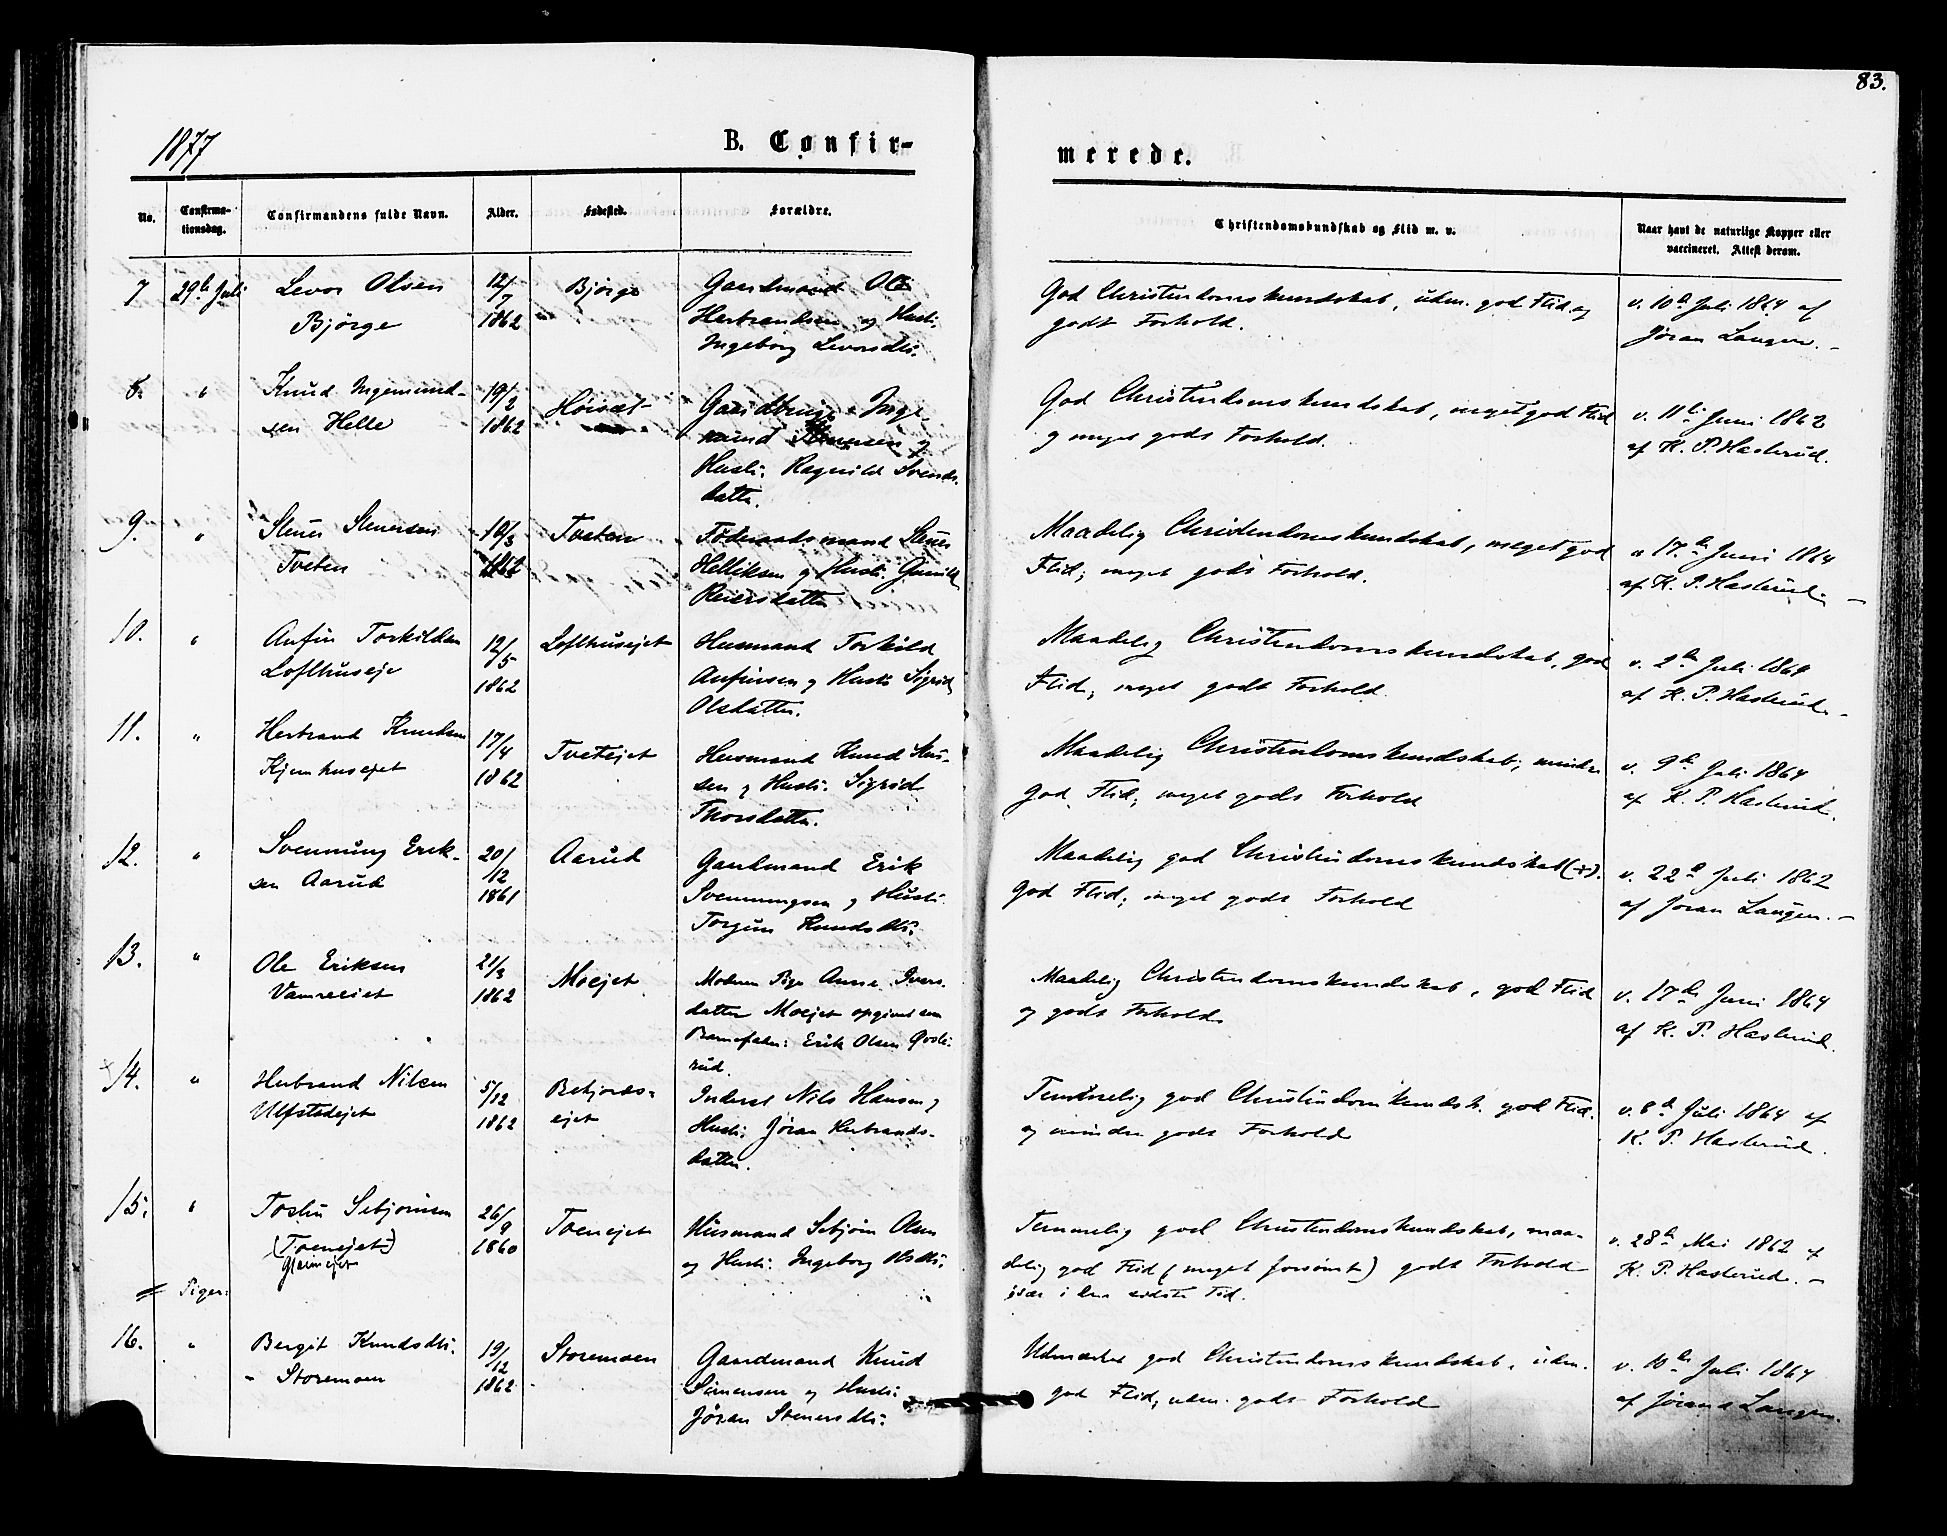 83.
1877
B. Confir-
merede.
No.
Confirma-
tionsdag.
Confirmandens fulde Navn.
Alder.
Fødested.
Forældre.
Christendomskundskab og Flid m. v.
Naar havt de naturlige Kopper eller
vaccineret. Attest derom.
7 29de Juli Levor Olsen 12/7 Bjørge Gaardmand Ole
Bjørge 1862 Herbrandsen og Hustr:
Ingeborg Levorsdtr.
God Christendomskundskab, udm. god Flid og v. 10de Juli 1864 af
godt Forhold. Jøran Langen. -
8. " Knud Ingemund- 19/2 Gaardbruger Inge
sen Helle 1862 mund og
Hustr: Ragnild Svends
datter.
God Christendomskundskab, meget god Flid v. 11te Juni 1862
og meget godt Forhold. af K. P. Haslerud.
9. " Stener Stenersen 10/3 Tveten Føderaadsmand Stener
Tveten Helliksen og Hustr: Gunild
Reiersdatter
Maadelig Christendomskundskab, meget god " 17de Juni 1864
Flid; meget godt Forhold. af K. P. Haslerud. -
10. " Anfin Torkildsen 12/5 Lofthusejet Husmand Torkild
Lofthuseje 1862 Anfinsen og Hustr Sigrid
Olsdatter.
Maadelig Christendomskundskab, god v. 2de Juli 1864
Flid, meget godt Forhold. af K. P. Haslerud. -
11. " Herbrand Knudsen 17/4 Tvetejet Husmand Knud
Kjemhusejet 1862 sen og Hustr: Sigrid
Thorsdatter.
Maadelig Christendomskundskab, mindre v. 9de Juli 1864
god Flid, meget godt Forhold af K. P. Haslerud.
12. " Svennung Erik- 20/12 Aarud Gaardmand Erik
sen Aarud 1861 Svennungsen og Hustr:
Torgun Knudsdtr:
Maadelig god Christendomskundskab (+). v. 22de Juli 1862
God Flid; meget godt Forhold af Jøran Langen. -
13. " Ole Eriksen 21/3 Moejet Moderen Pige Anne Ivers-
1862 datter Moejet opgivet som
Barnefader: Erik Olsen
rud.
Maadelig Christendomskundskab, god Flid v. 17de Juni 1864
og godt Forhold af K. P. Haslerud.
14. " Herbrand Nilsen 5/12
Ulfstedejet 1862 ejet
Inderst Nils Hansen og
Hustr: Jøran Herbrands-
datter.
Temmelig god Christendomskundsk. god Flid. v. 8de Juli 1864 af
og mindre godt Forhold K. P. Haslerud.
15. " Sebjørnsen 26/9 Tvenejet Husmand Sebjørn Olsen
(Tvenejet) 1860 og Hustr: Ingeborg Olsdtr:
Temmelig god Christendomskundskab, maa- v. 28de Mai 1862 af
delig god Flid (meget forsømt) godt Forhold K. P. Haslerud. -
især i den sidste Tid.
Piger:
16. " Bergit Knudsdtr. 19/12 Storemoen Gaardmand Knud
- Storemoen 1862 Simensen og Hustr:
Jøran Stenersdtr:
Udmærket god Christendomskundskab, udm. v. 10de Juli 1864
god Flid, udm. godt Forhold af Jøran Langen.